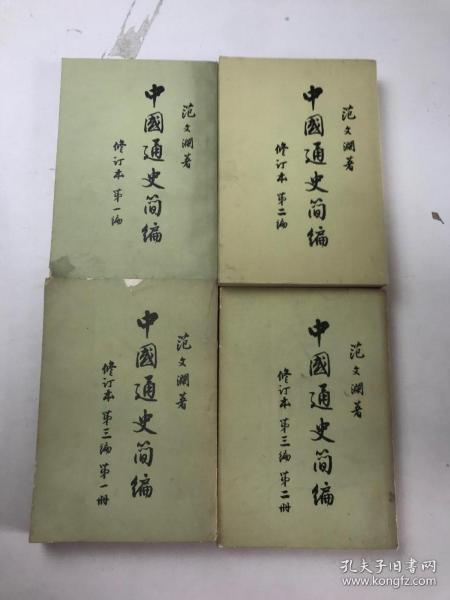 范文澜著
中國通史简编
修订本 第一编
范文澜著
中國通史简编
修订本 第二编
范文澜著
中國通史简编
修订本 第三编 第一册
范文澜著
中國通史简编
修订本 第三编 第二册
孔夫子旧书网
www.kongfz.com